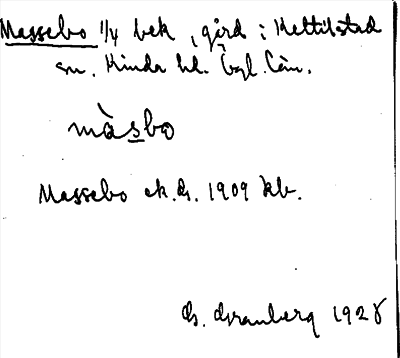 Massebo 1/4 bek, gård i Kettilstad
sn. Kinda hd. Ögl. län.
màsbo
Massebo ek.k. 1909 kb.
G. Granberg 1928